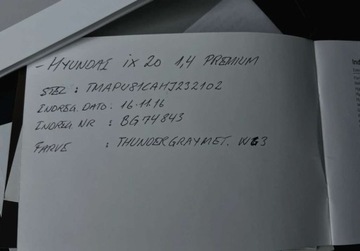 - HYUNDAI ix 20 1,4 PREMIUM
STEL : TMAPU81CAHJ232102
INDREG. DATO. 16.11.16
INDREG NR : BG 74843
FARVE : THUNDERGRAYMET. WG3